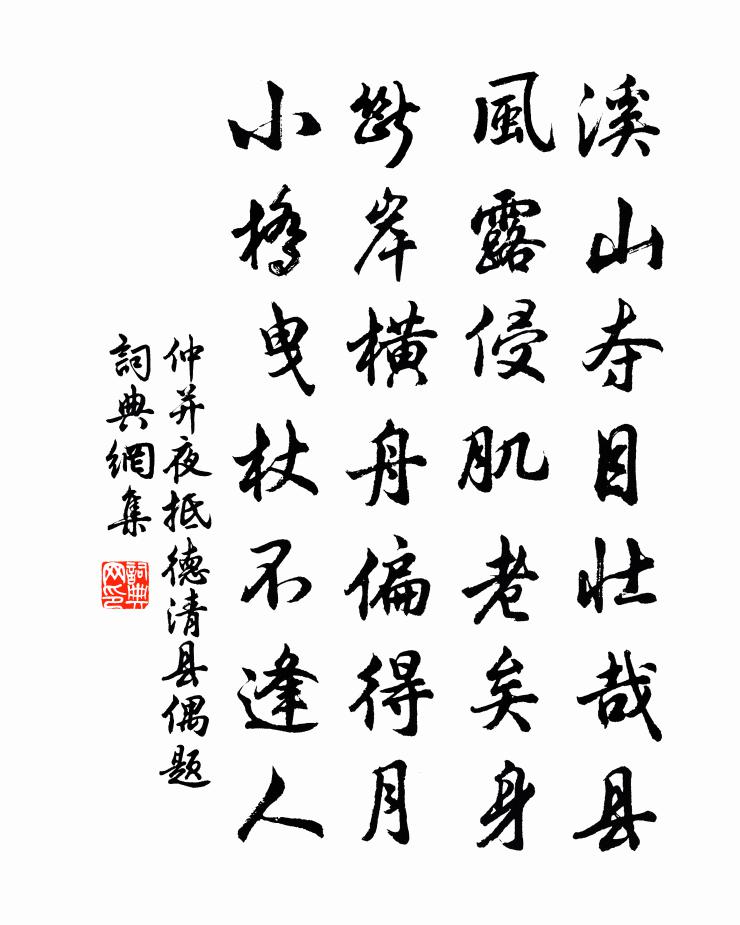 溪山夺目壮哉县
風露侵肌老矣身
斷岸橫舟偏得月
小橋曳杖不逢人
仲并夜抵德清县偶题
詞典網集
詞典网印